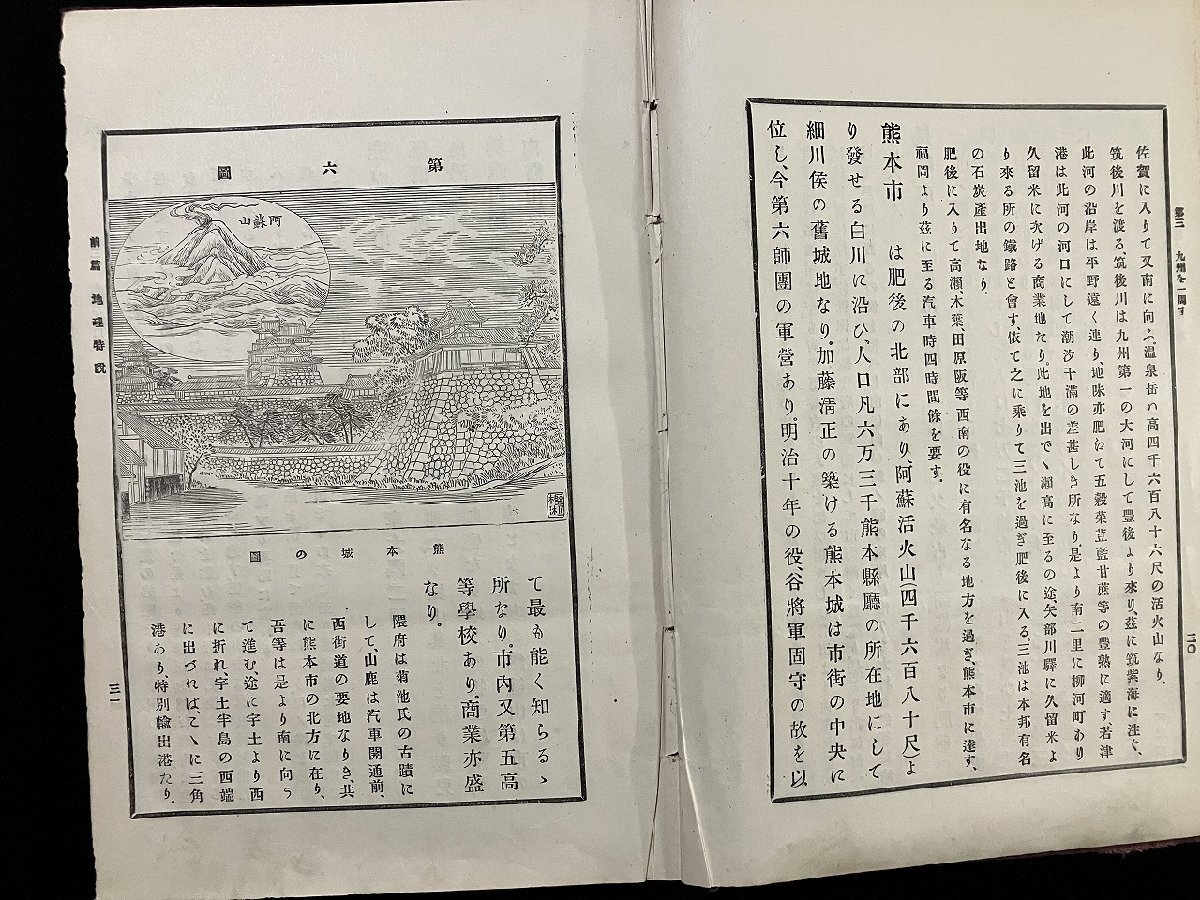 第三 九州を一周す
三〇
佐賀に入りて又南に向ふ、温泉岳は高四千六百八十六尺の活火山なり、
筑後川を渡る、筑後川は九州第一の大河にして豊後より來り、茲に筑紫海に注ぐ、
此河の沿岸は平野遠く連り、地味亦肥にて五穀菜荳藍甘蔗等の豊熟に適す、若津
港は此河の河口にして潮汐干滿の差甚しき所なり、是より南一里に柳河町あり
久留米に次げる商業地なり、此地を出でゝ瀬高に至るの途、矢部川驛に久留米よ
り來る所の鐵路と會す、依て之に乘りて三池を過ぎ肥後に入る、三池は本邦有名
の石炭產出地なり、
肥後に入りて高瀬、木葉、田原阪等西南の役に有名なる地方を過ぎ、熊本市に達す、
福岡より茲に至る汽車時四時間餘を要す。
熊本市 は肥後の北部にあり、阿蘇活火山(四千六百八十尺)よ
り發せる白川に沿ひ、人口凡六万三千熊本縣廳の所在地にして
細川侯の舊城地なり。加藤淸正の築ける熊本城は市街の中央に
位し、今第六師團の軍營あり。明治十年の役、谷將軍固守の故を以
前篇 地理特説
三一
第六圖
阿蘇山
熊本城の圖
て最も能く知らるゝ
所なり。市内又第五高
等學校あり。商業亦盛
なり。
隈府は菊池氏の古蹟に
して、山鹿は汽車開通前、
西街道の要地なりき、共
に熊本市の北方に在り、
吾等は是より南に向つ
て進む、途に宇土より西
に折れ、宇土半島の西端
に出づればこゝに三角
港あり、特別輸出港たり、